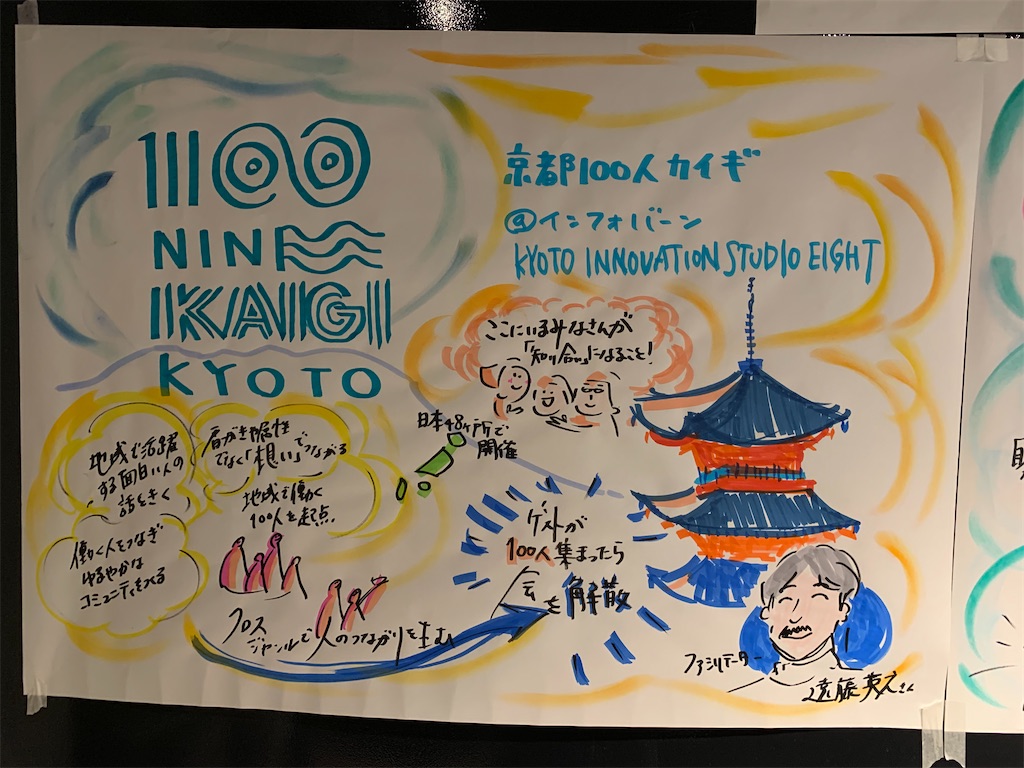 100
NIN
KAIGI
KYOTO
京都100人カイギ
@インフォバーン
KYOTO INNOVATION STUDIO EIGHT
ここにいるみなさんが
「知り合い」になること!
日本48ヶ所で
開催
地域で活躍
する面白い人の
話をきく
肩がきや属性
でなく「想い」でつながる
地域で働く
100人を起点
働く人をつなぎ
ゆるやかな
コミュニティをつくる
クロス
ジャンルで人のつながりを生む
ゲストが
100人集まったら
会を解散
ファシリテーター
遠藤英之さん